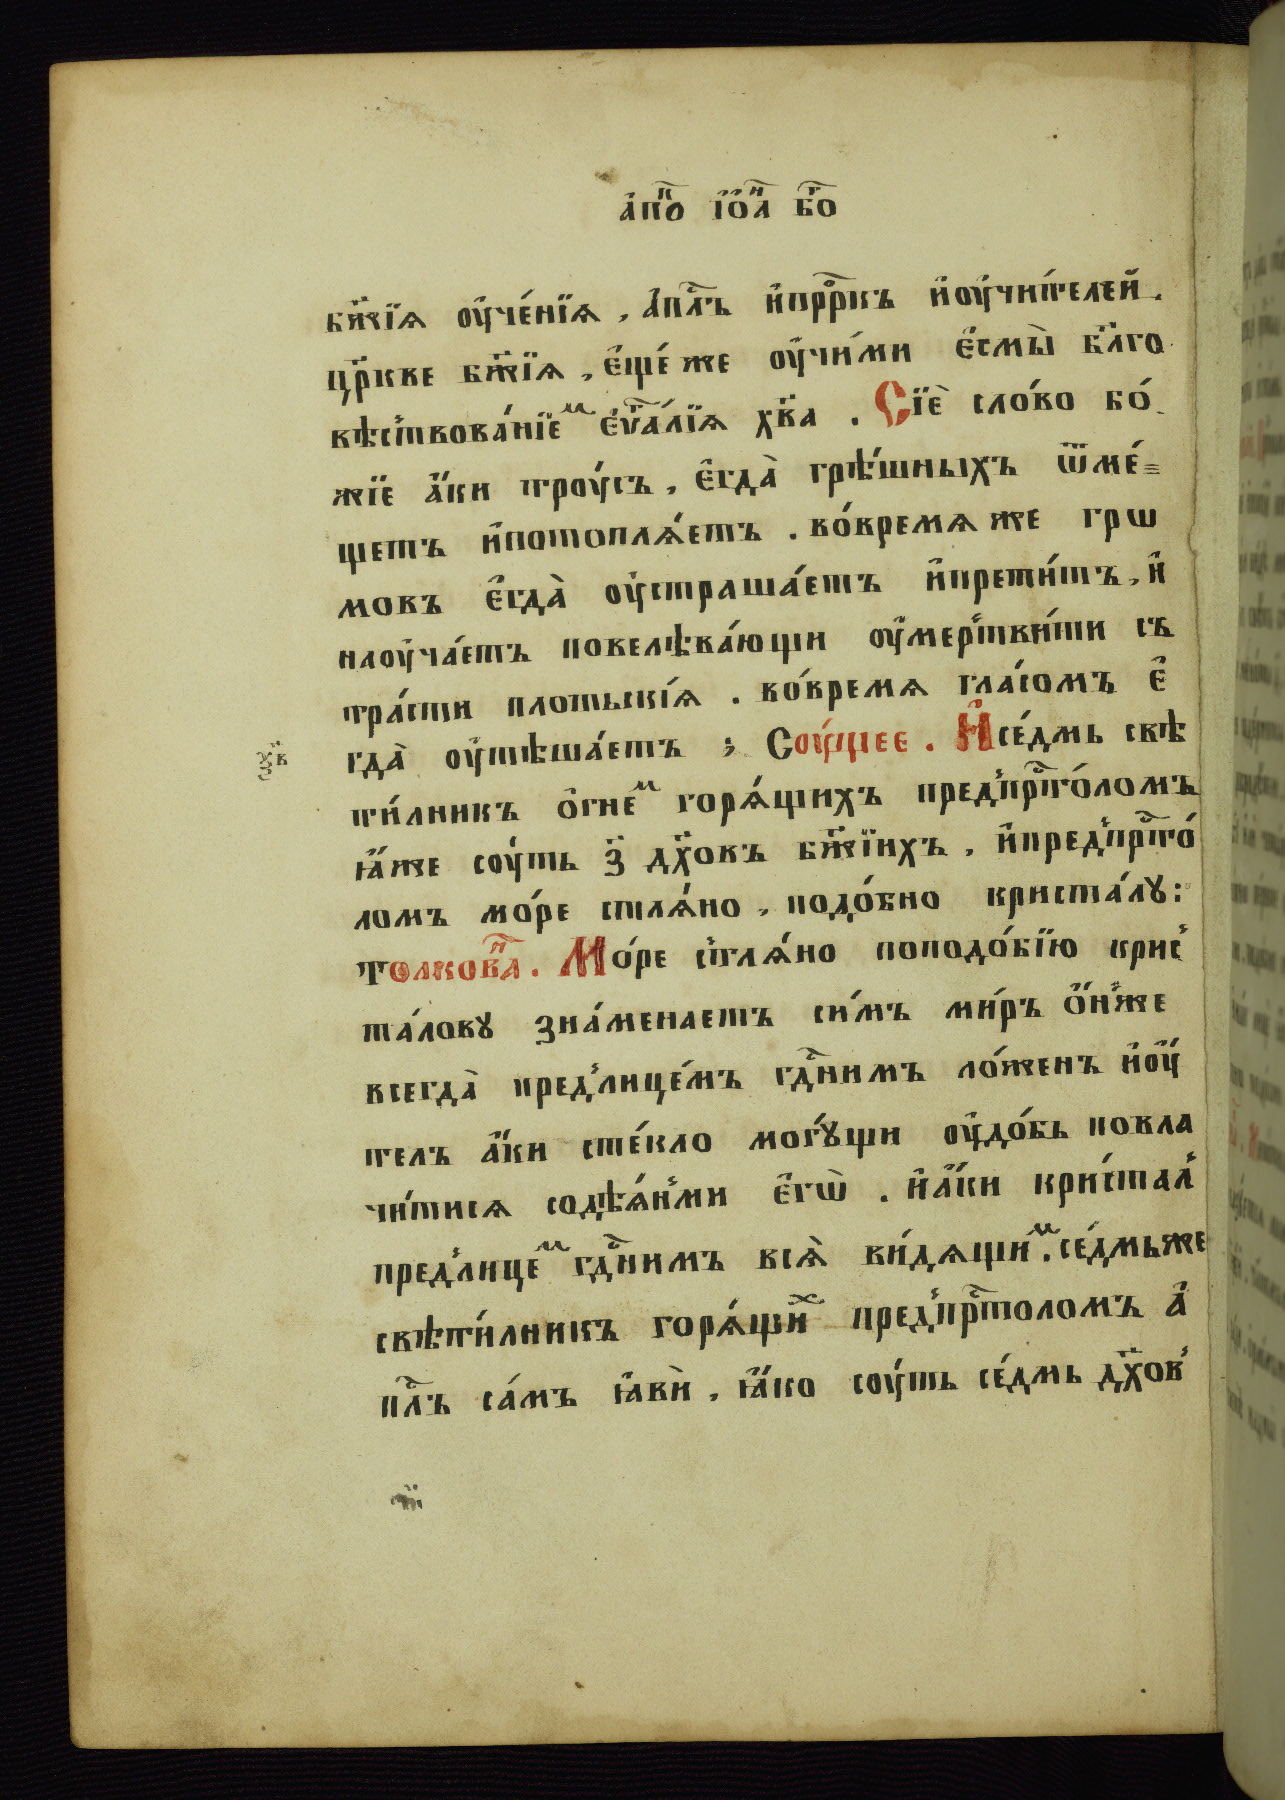 а҆п҆о і҆ѡ҆а бг҃о
бж҃їѧ оу҆че́нїѧ , А҆пл҃ъ и҆прⷪ҇ркъ и҆оу҆чи́телей .
цр҃кве бж҃їѧ , є҆ще́ же оу҆чи́ми є҆смы̀ бл҃го
вѣствова́нїеⷨ є҆ѵⷢ҇а́лїѧ хв҃а . Сїѐ сло́во бо́
жїе а҆́ки троу́съ , є҆гда̀ грѣ́шныхъ ѿме́=
щетъ и҆потоплѧ́етъ . во́времѧ же грѡ
мовъ є҆гда̀ оу҆страша́етъ и҆прети́тъ , и҆
наоуча́етъ повелѣва́ющи оу҆мертви́ти съ
тра́сти плотьскі́ѧ . во́времѧ гла́сомъ є҆
гда̀ оу҆тѣша́етъ ; Соу́щее . И҆се́дмь свѣ
ѯ҃в
ти́лникъ о҆гнеⷨ горѧ́щихъ предпрⷭ҇то́ломъ
ꙗ҆́же соу́ть з҃ дх҃овъ бж҃їихъ , и҆предпрⷭ҇то́
ломъ мо́ре стлѧ́но , подо́бно криста́лꙋ :
Толкова . Мо́ре стлѧ́но поподо́бїю крис
та́ловꙋ зна́менаетъ си́мъ ми́ръ о҆́нже
всегда̀ предлице́мъ гдⷭ҇нимъ ло́женъ и҆оу҆́
телъ а҆́ки сте́кло могꙋ́щи оу҆до́бь повла
чи́тисѧ содѣѧ́нми є҆гѡ̀ . и҆а҆́ки кри́стал
предлицеⷨ гдⷭ҇нимъ всѧ̀ ви́дѧщиⷨ . се́дмьже
свѣти́лникъ горѧ́щиⷯ предпрⷭ҇толомъ а҆
пл҃ъ са́мъ ꙗ҆вѝ , ꙗ҆́ко соу́ть се́дмь дх҃ов